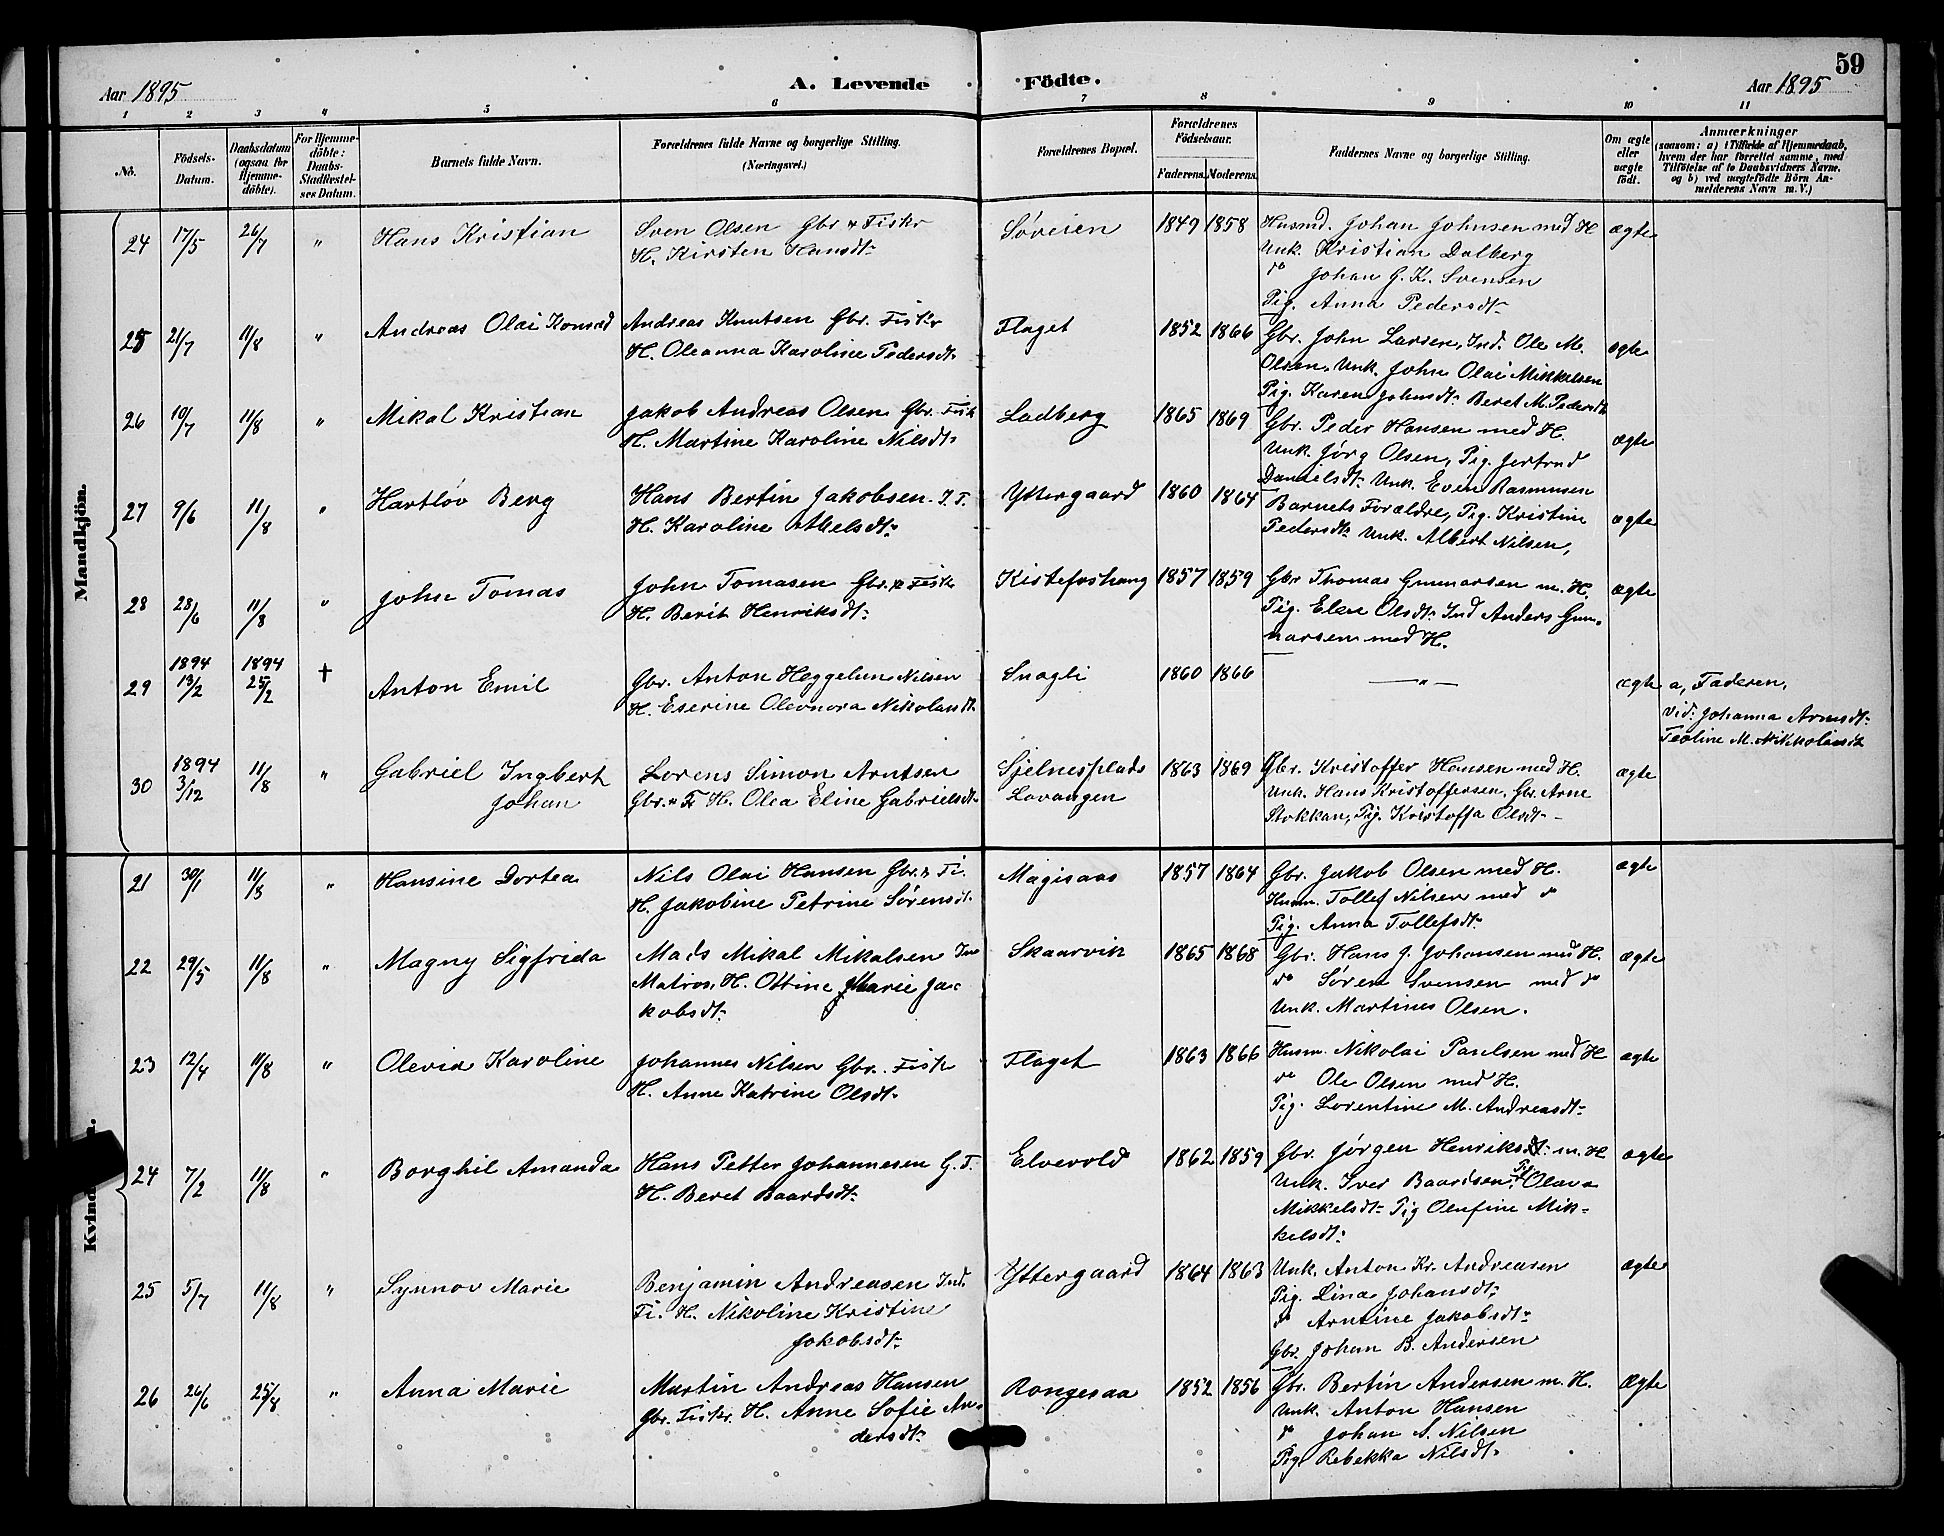 59
Aar 1895 A. Levende Födte. Aar 1895
1 2 3 4 5 6 7 8 9 10 11
No.
Födsels-Datum.
Daabsdatum (ogsaa for Hjemme-döbte).
For Hjemme-döbte: Daabs-Stadfæstel-ses Datum.
Barnets fulde Navn.
Forældrenes fulde Navne og borgerlige Stilling. (Næringsvei.)
Forældrenes Bopæl.
Forældrenes Födselsaar.
Faderens. Moderens.
Faddernes Navne og borgerlige Stilling.
Om ægte eller uægte födt.
Anmærkninger
(saasom: a) i Tilfælde af Hjemmedaab, hvem der har forrettet samme, med Tilföielse af to Daabsvidners Navne, og b) ved uægtefödte Börn An-melderens Navn m. V.)
Mandkjön.
24 17/5 26/7 " Hans Kristian Sven Olsen Gbr & Fiskr Søreien 1849 1858 Husmd. Johan Johnsen med H ægte
H. Kirsten Hansdt: Unk. Kristian Dalberg
do Johan G. K. Svensen
Pig. Anna Pedersdt:
25 21/7 11/8 " Andreas Olai Konrad Andreas Knutsen Gbr. Fiskr Flaget 1852 1866 Gbr. John Larsen, Ind. Ole M. ægte
H. Oleanna Karoline Pedersdt: Olsen, Unk. John Olai Mikkelsen
Pig. Karen Johnsdt: Beret M. Pedersdt
26 10/7 11/8 " Mikal Kristian Jakob Andreas Olsen Gbr. Fisk Ladberg 1865 1869 Gbr. Peder Hansen med H. ægte
H. Martine Karoline Nilsdt: Unk. Jørg Olsen, Pig. Jertrud
Danielsdt: Unk. Even Rasmusen
27 9/6 11/8 " Hartløv Berg Hans Bertin Jakobsen I. F. Yttergaard 1860 1864 Barnets Forældre, Pig. Kristine ægte
H. Karoline Abelsdt: Pedersdt: Unk. Albert Nilsen,
28 28/6 11/8 " John Tomas John Tomasen Gbr. & Fiskr Kistefoshaug 1857 1859 Gbr Thomas Gunnarsen m. H. ægte
H. Berit Henriksdt: Pig. Elen Olsdt: Ind Anders Gun-
narsen med H.
29 1894 13/2 1894 25/2 † Anton Emil Gbr. Anton Heggelun Nilsen Snogli 1860 1866 — " — ægte a, Faderen,
H. Eserine Oleonora Nikolaisdt Vid: Johanna Arnsdt:
Teoline M. Nikolaisdt
30 1894 3/12 11/8 " Gabriel Ingbert Lorens Simon Arntsen Sjelnesplads 1863 1869 Gbr. Kristoffer Hansen med H. ægte
Johan Gbr. & Fi H. Olea Eline Gabrielsdt: Lavangen Unk. Hans Kristoffersen, Gbr. Arne
Stokkan, Pig. Kristoffa Olsdt:
21 30/1 11/8 " Hansine Dortea Nils Olai Hansen Gbr. & Fi. Magisaas 1857 1864 Gbr. Jakob Olsen med H. ægte
H. Jakobine Petrine Sørensdt: Husm. Tollef Nilsen med do
Pig. Anna Tollefsdt:
22 29/5 11/8 " Magny Sigfrida Mads Mikal Mikalsen Skaarvik 1865 1868 Gbr. Hans J. Johansen med H. ægte
Matros, H. Ottine Marie Ja- do Søren Svensen med do
kobsdt: Unk. Martines Olsen.
23 12/4 11/8 " Olevia Karoline Johannes Nilsen Gbr. Fisk Flaget 1863 1866 Husm. Nikolai Paulsen med H ægte
H. Anne Katrine Olsdt: do Ole Olsen med H.
Pig. Lorentine M. Andreasdt:
24 7/2 11/8 " Borghil Amanda Hans Petter Johannesen G. F. Elvevold 1862 1859 Gbr. Jørgen Henriks m. H ægte
H. Beret Baardsdt: Unk. Iver Baardsen, Pig Olava
Mikkelsdt: Pig Olufine Mik-
kelsdt:
25 5/7 11/8 " Synnøv Marie Benjamin Andreasen Ind. Yttergaard 1864 1863 Unk. Anton Kr. Andreasen ægte
Fi. H. Nikoline Kristine Pig. Lina Johansdt:
Jakobsdt: do Arntine Jakobsdt:
Gbr. Johan B. Andersen
26 26/6 25/8 " Anna Marie Martin Andreas Hansen Rongesaa 1852 1856 Gbr. Bertin Andersen m. H. Ægte
Gbr. Fiskr. H. Anne Sofie An- Unk. Anton Hansen
dersdt: do Johan A. Nilsen
Pig Rebekka Nilsdt: